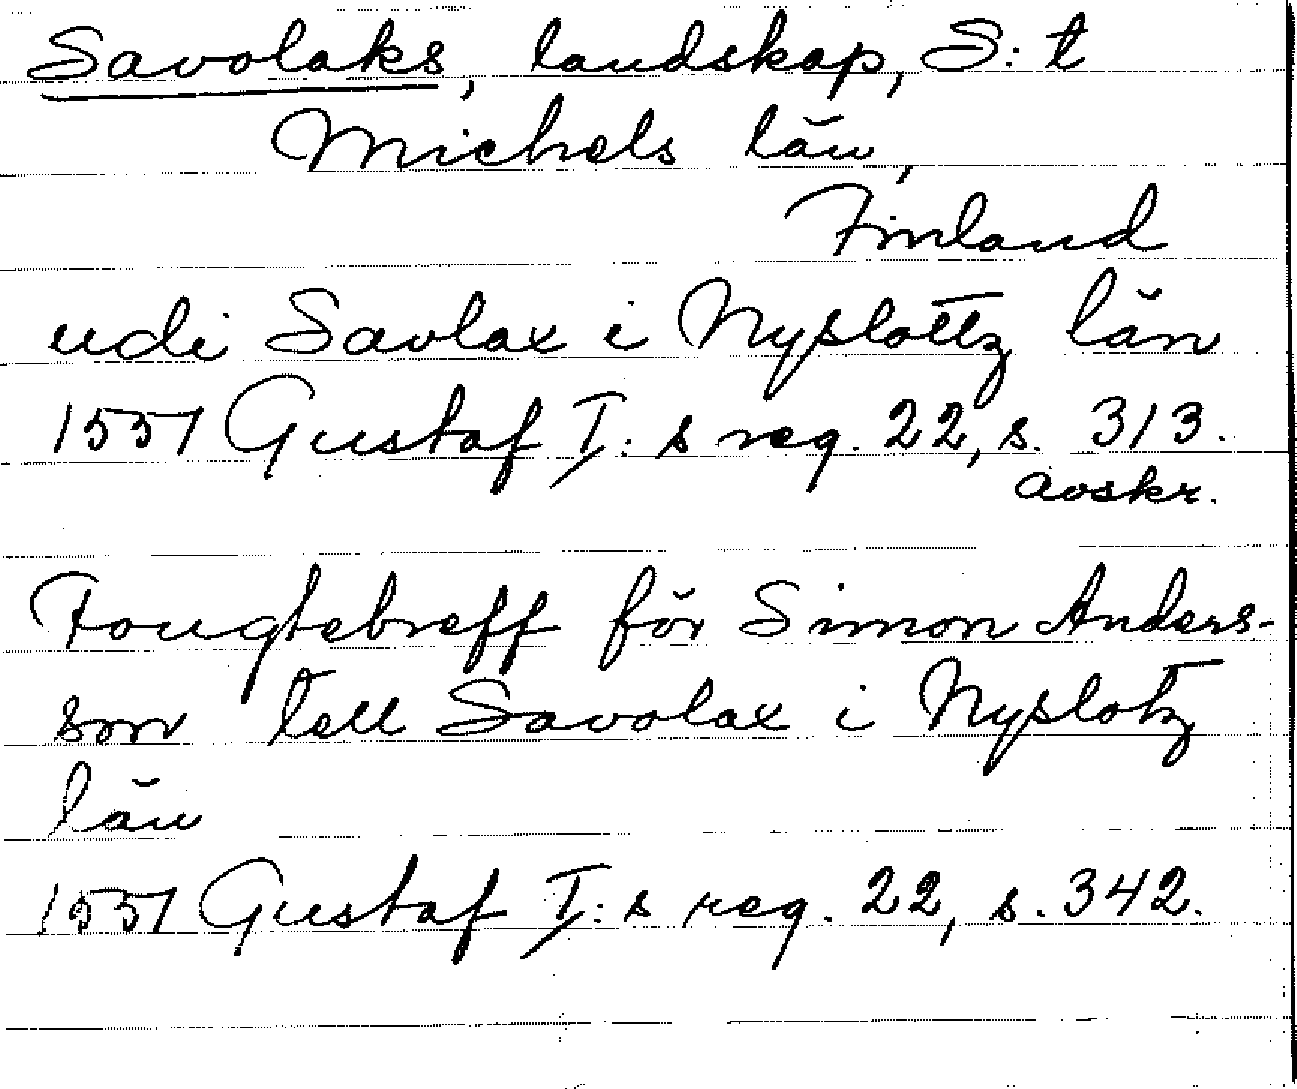 Savolaks, landskap, S:t
Michels län,
Finland
udi Savlax i Nyslottz län
1551 Gustaf I:s reg. 22, s. 313.
avskr.
Fougtebreff för Simon Anders-
son tell Savolax i Nyslotz
län
1551 Gustaf I:s reg. 22, s. 342.